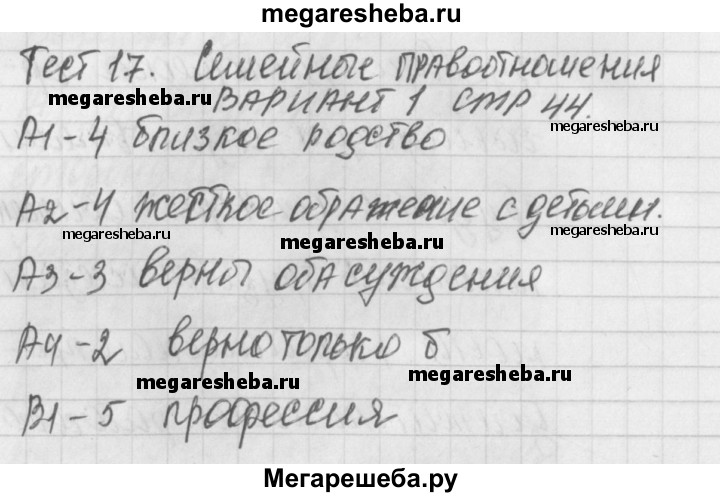 megaresheba.ru
Тест 17. Семейные правоотношения
megaresheba.ru ВАРИАНТ 1 стр 44.
megaresheba.ru
А1-4 близкое родство
А2-4 жесткое обращение с детьми.
megaresheba.ru megaresheba.ru megaresheba.ru
А3-3 верны оба суждения
А4-2 верно только б
megaresheba.ru megaresheba.ru
В1-5 профессия
Мегарешеба.ру